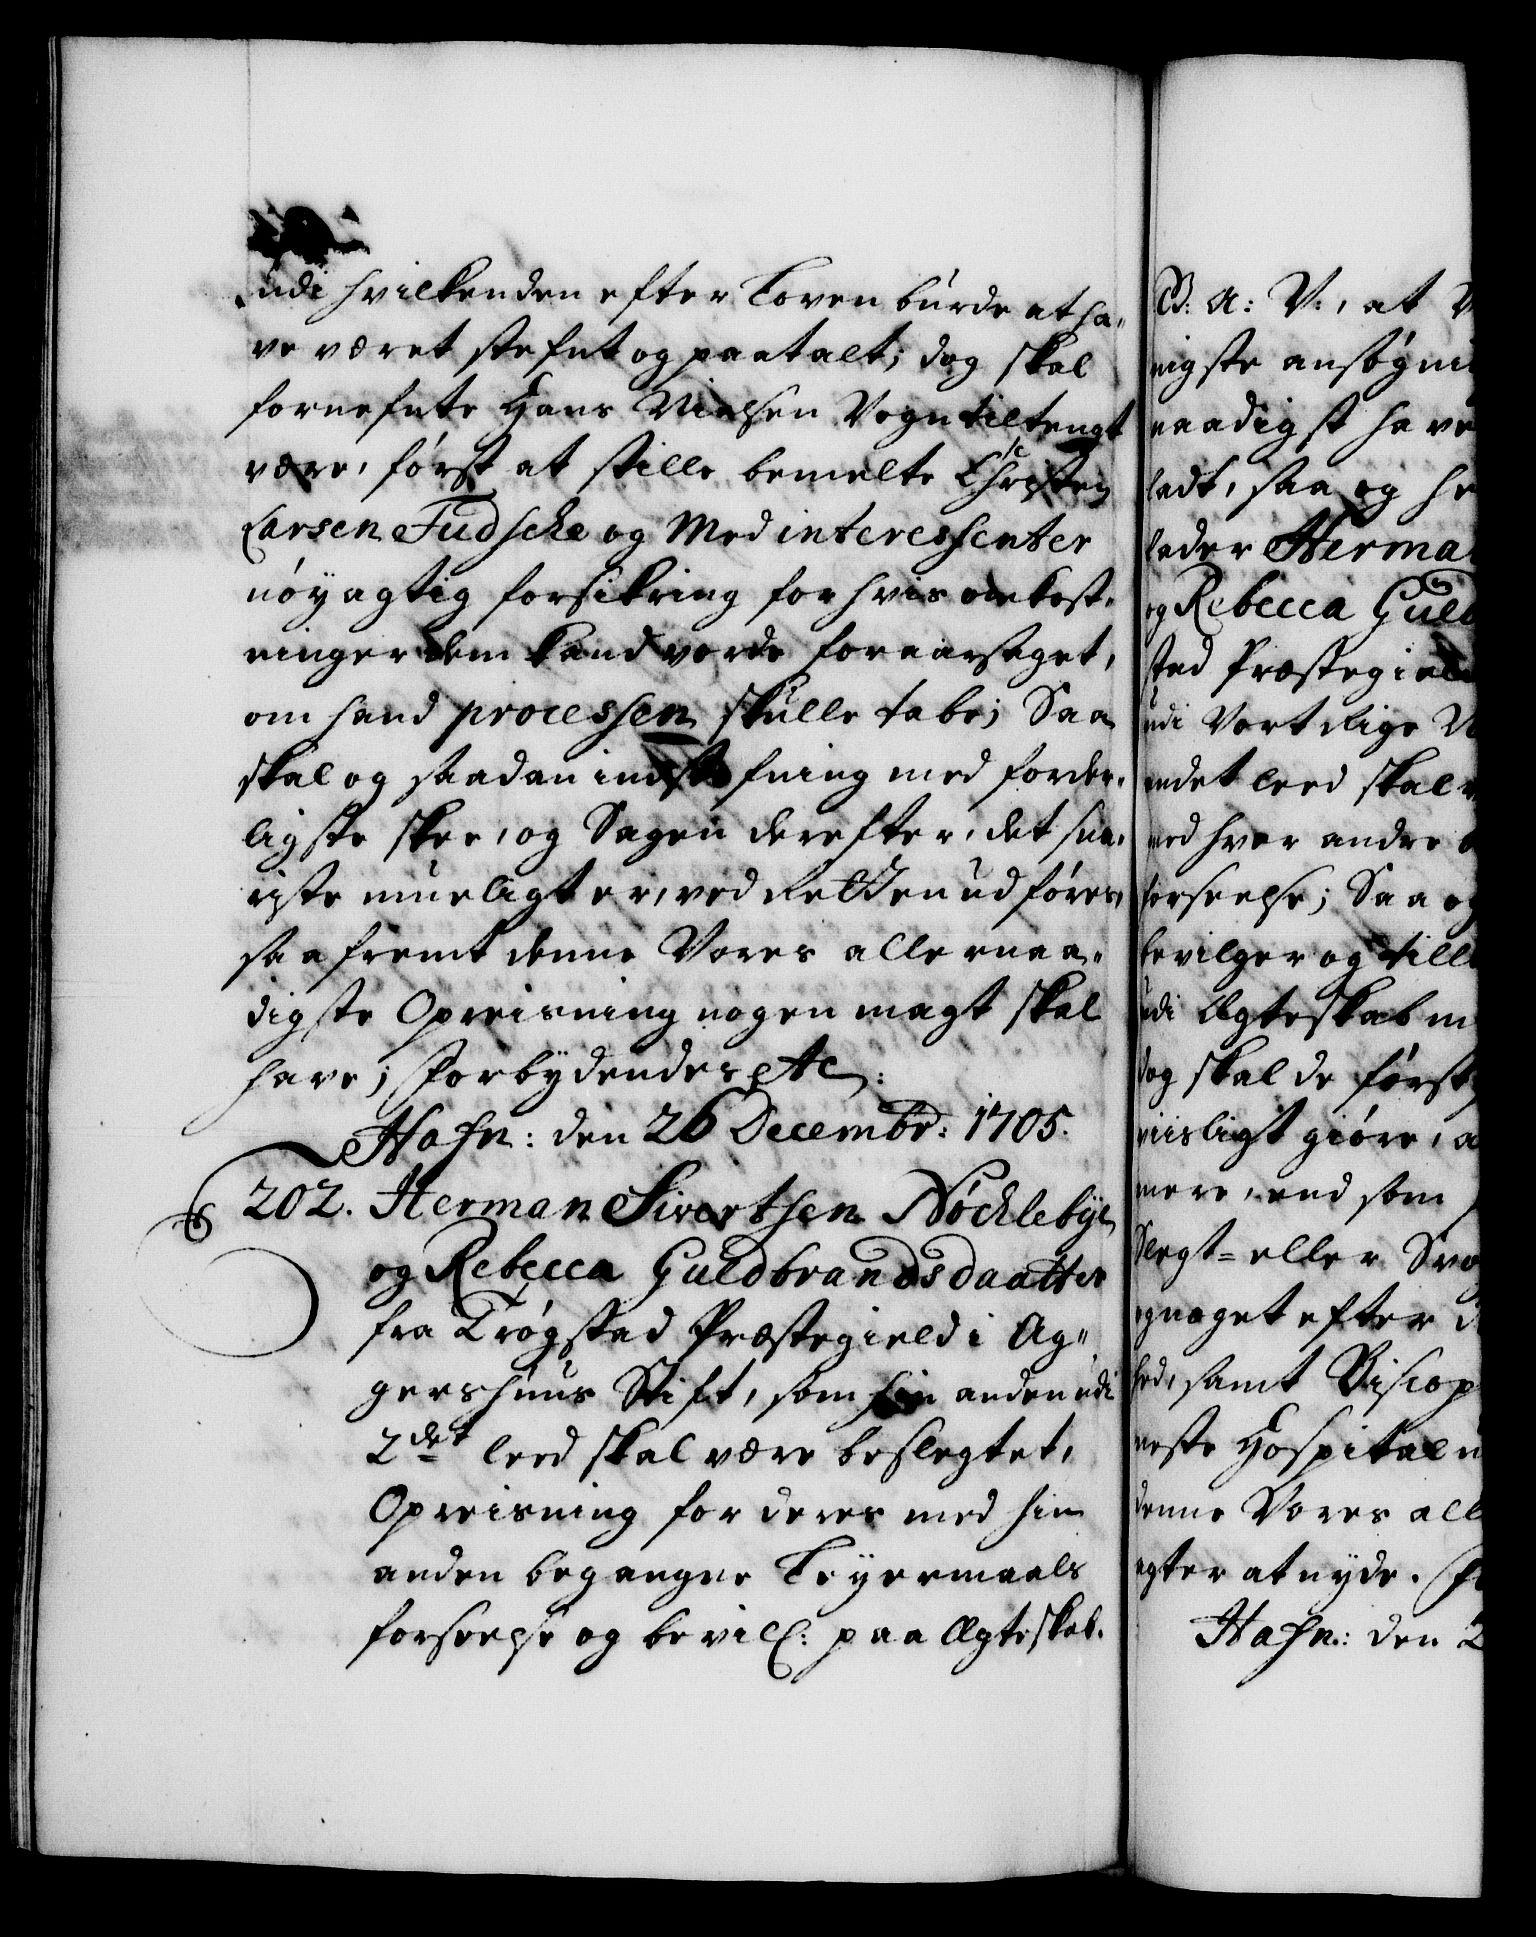 udi hvilken den efter Loven burde at ha-
ve været stefnt og paatalt; dog skal
fornefnte Hans Nielsen Vogn tiltengt
være, først at stille bemelte Christen
Larsen Fudsche og Med interessenter
nöyagtig forsikring for hvis omkost-
ninger dem kand vorde foraarsaget,
om hand processen skulle tabe; Saa
skal og saadan indstefning med forder-
ligste skee, og Sagen derefter, det sna-
riste mueligt er, ved Retten udføres,
saafremt denne Vores allernaa-
digste Opreisning nogen magt skal
have; Forbydendes etc:
Hafn: den 26 Decembr: 1705.
202. Herman Sivertsen Nöchlebye
og Rebecca Guldbrandsdaatter
fra Trøgstad Præstegield i Ag-
gershuus Stift, som hin anden udi
2det leed skal være beslegtet,
Opreisning for deres med hin
anden begangne Leyermaals
forseelse og bevill: paa Ægteskab.
B: A: V:, at
nigste ansøgni
naadigst have
ladt, saa og he
lader Herma
og Rebecca Guld
sted Præstegield
udi Vort Rige N
andet leed skal
med hver andre
forseelse; Saa og
bevilger og till
udi Ægteskab m
dog skal de først
viisligt giøre, a
mere, end som
Slegt- eller Svo
gnoget efter d
hed, samt Biscop
neste Hospital
denne Vores all
agter at nyde. F
Hafn: den 2